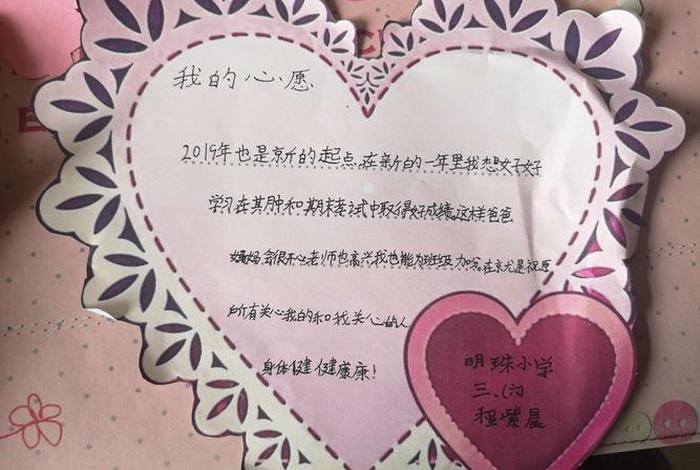 我的心愿
2019年也是新的起点,在新的一年里我想好好
学习在其中和期末考试中取得好成绩,这样爸爸
妈妈会很开心老师也高兴我也能为班级加分。在京尤是祝愿
所有关心我的和我关心的人
身体健健康康!
明珠小学
三、(六)
程紫晨